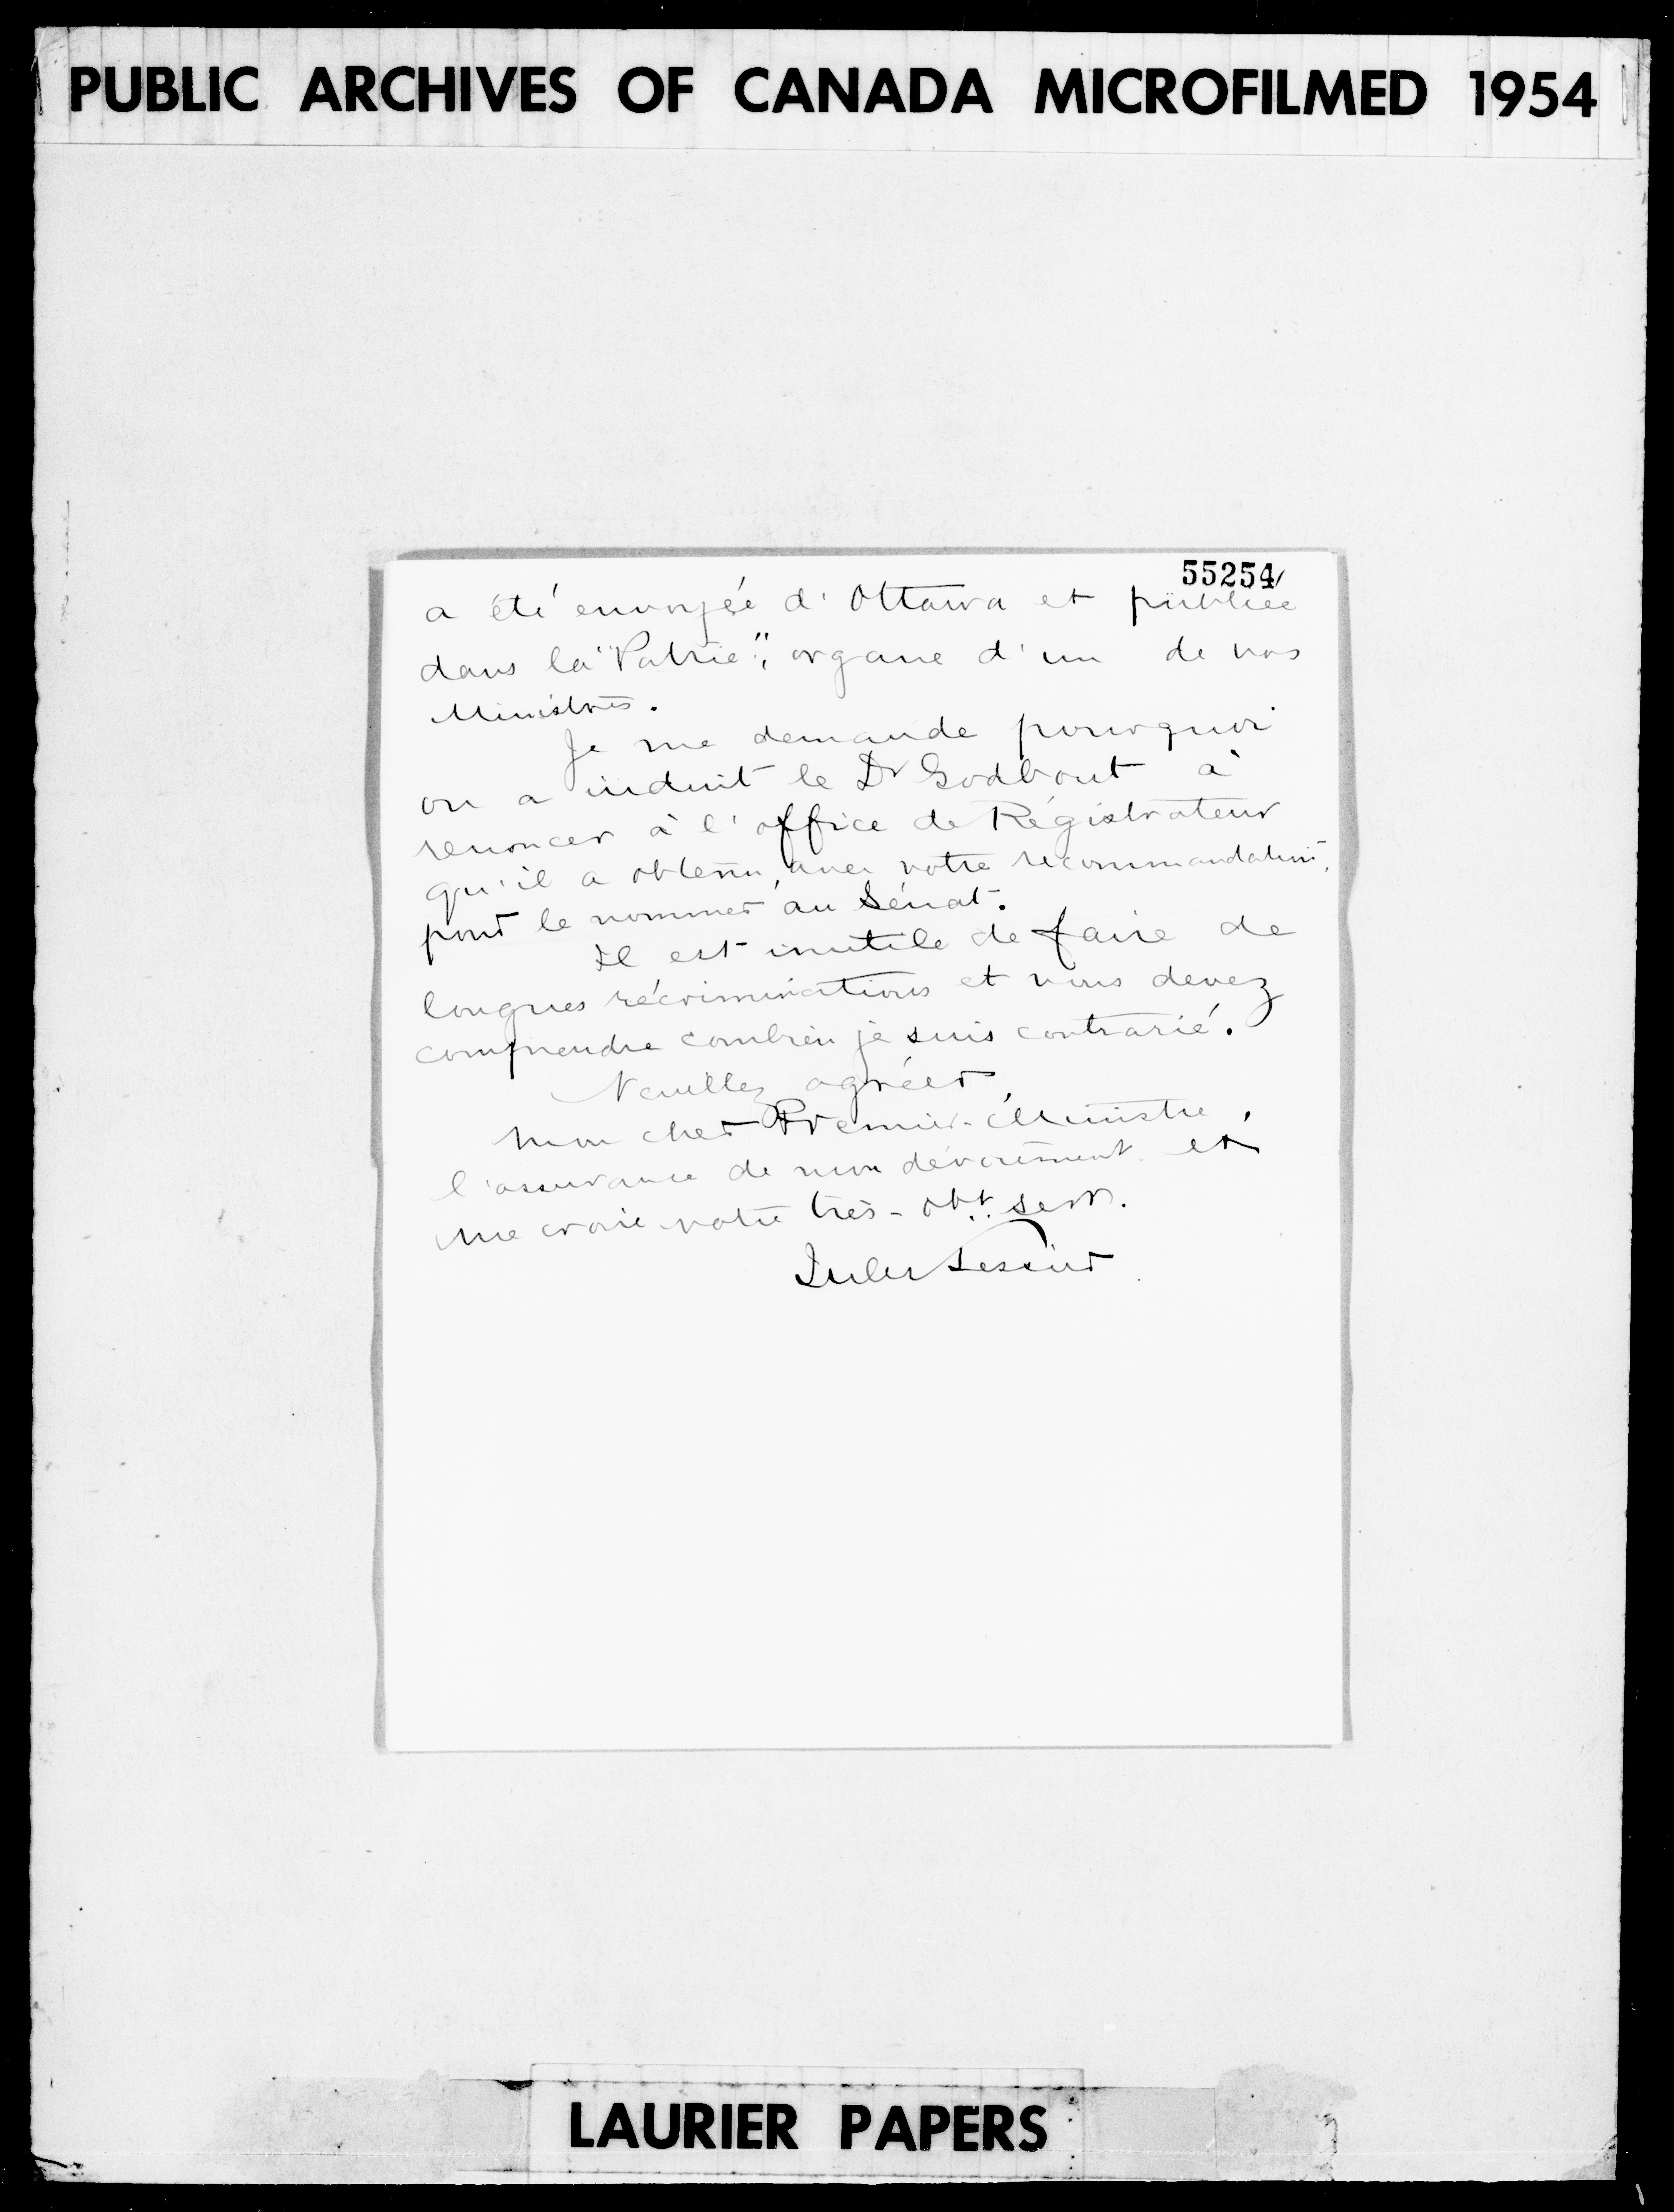 PUBLIC ARCHIVES OF CANADA MICROFILMED 1954
55254
a été envoyée d'Ottawa et publiée
dans la "Patrie", organe d'un de nos
Ministres.
Je me demande pourquoi
on a induit le Dr Godbout à
renoncer à l'office de Régistrateur
qu'il a obtenu, avec votre recommandation,
pour le nommer au Sénat.
Il est inutile de faire de
longues récriminations et vous devez
comprendre combien je suis contrarié.
Veuillez agréer,
Mon cher Premier-Ministre,
l'assurance de mon dévouement et
me croire votre très-obt. serv.
Jules Tessier
LAURIER PAPERS